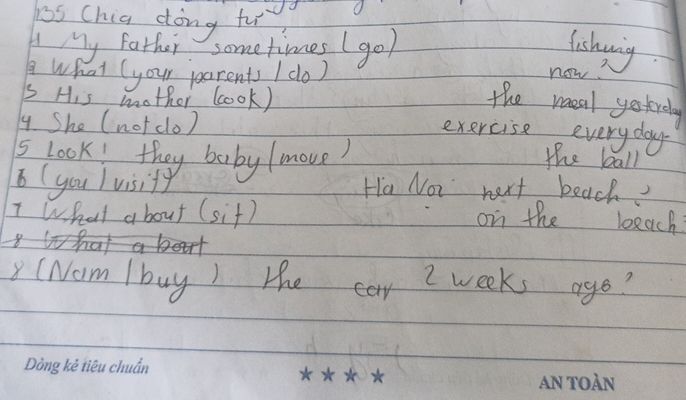 135 Chia động từ
1 My father sometimes (go) fishing
2 What (your parents / do) now?
3 His mother (cook) the meal yesterday
4. She (not do) exercise everyday.
5 Look! they baby (move) the ball
6 (you / visit) Ha Noi next beach?
7 What about (sit) on the beach?
8 What about
8 (Nam / buy) the car 2 weeks ago?
Dòng kẻ tiêu chuẩn ★ ★ ★ ★ AN TOÀN